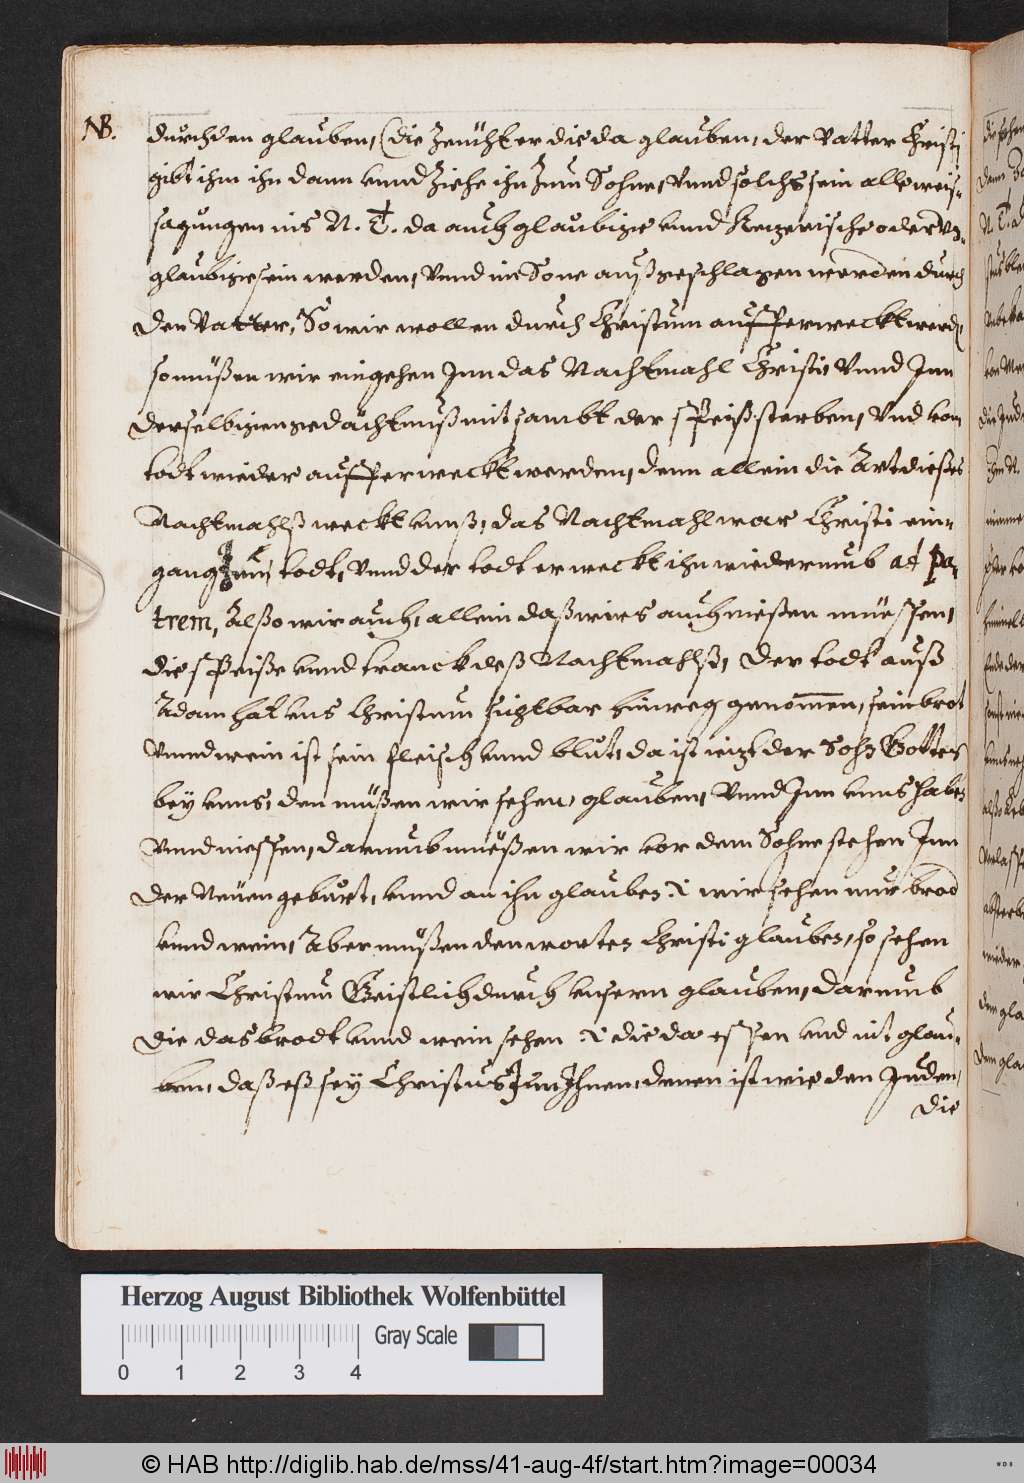 NB.
durch den glauben, (die Zeücht er die da glauben, der Vatter Christi
gibt ihm ihn dann vnnd Ziehe ihn Zum Sohne, Vnnd solchs sein alle weis-
sagungen ins N. T. da auch glaubige vnnd Ketzerische oder Vn-
glaubige sein werden, Vnnd die Sone außgeschlagen werden durch
den Vatter, So wir wollen durch Christum aufferweckt werden
so müßen wir eingehen Inn das Nachtmahl Christi Vnnd Inn
derselbigen gedächtnuß mit sambt der speiß sterben, Vnd vom
todt wieder aufferweckt werden, denn allein die Art dießes
Nachtmahlß weckt vnnß, das Nachtmahl war Christi ein-
gang Zum todt, Vnnd der todt erweckt ihn wiederumb ad pa-
trem, Also wir auch, allein daß wirs auch nießen müessen,
die speiße vnnd tranck deß Nachtmahlß, der todt auß
Adam hat vns Christum sichtbar hinweg genommen, sein brot
Vnnd wein ist sein fleisch vnnd blut, da ist ietzt der Sohn Gottes
bey vnns, den müßen wir sehen, glauben, Vnnd Inn vnns haben
Vnnd niessen, darumb müeßen wir vor dem Sohne stehen Inn
der Neüen geburt, vnnd an ihn glauben, wir sehen nur brod
vnnd wein, Aber müßen den worten Christi glauben, so sehen
wir Christum Geistlich durch vnsern glauben, darumb
die das brodt vnnd wein sehen die da essen vnd nit glau-
ben, daß eß sey Christus Inn Ihnen, denen ist wie den Juden,
die
Herzog August Bibliothek Wolfenbüttel
Gray Scale
0 1 2 3 4
© HAB http://diglib.hab.de/mss/41-aug-4f/start.htm?image=00034